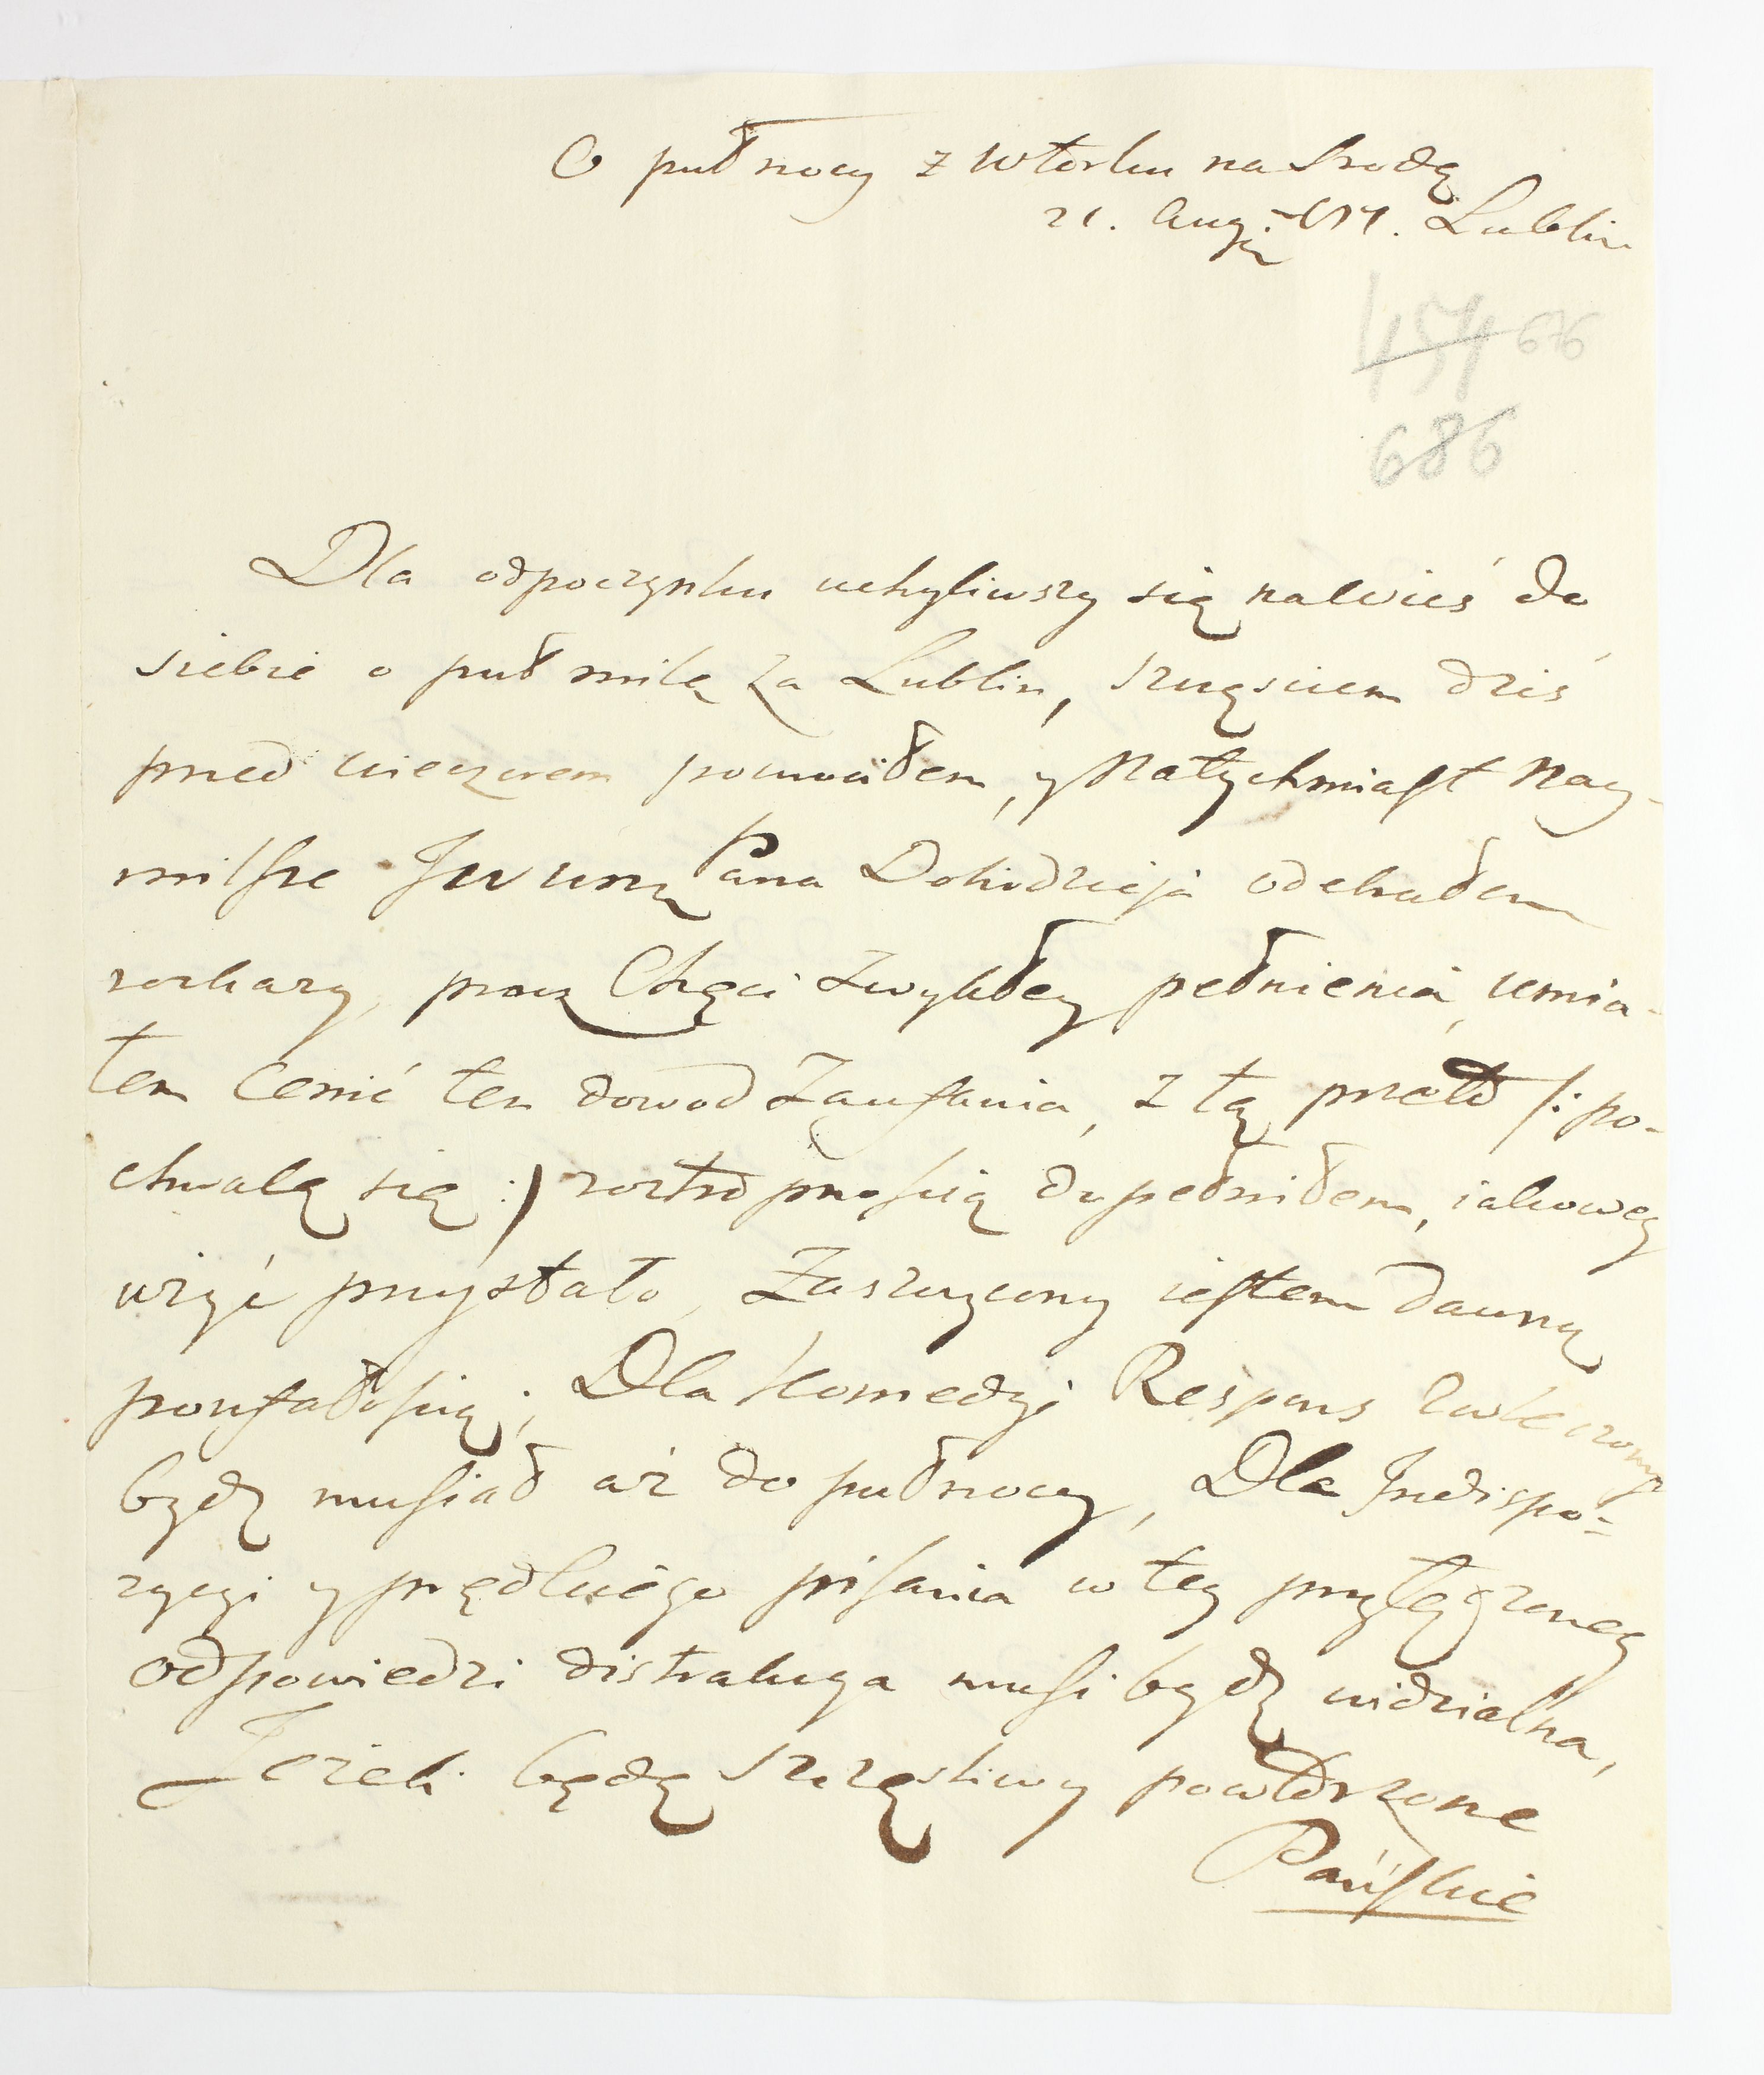 O puł nocy z Wtorku na Srodę
21. Aug: Lublin
454 676
686
Dla odpoczynku uchyliwszy się na wieś do
siebie o puł milę za Lublin, szczęsciem dziś
przed wieczorem powrociłem, y Natychmiast Nay-
milsze Jwwny Pana Dobrodzieja odebrałem
roskazy, przez Chęci zwykłey pełnienia, umia-
łem Cenić ten dowod Zaufania, z tą przeto /: po-
chwalę się :/ rostropnością dopełniłem, iakowey
użyć przystało, Zaszczycony iestem dawną
poufałością; Dla Komedyi Respons zwleczony
będę musiał aż do pułnocy, Dla Indispo-
zycyi y prędkiego pisania w tey przyłączoney
odpowiedzi distrakcya musi bydź widzialna,
Jeżeli będę szczęśliwy powtórzone
Pańskie